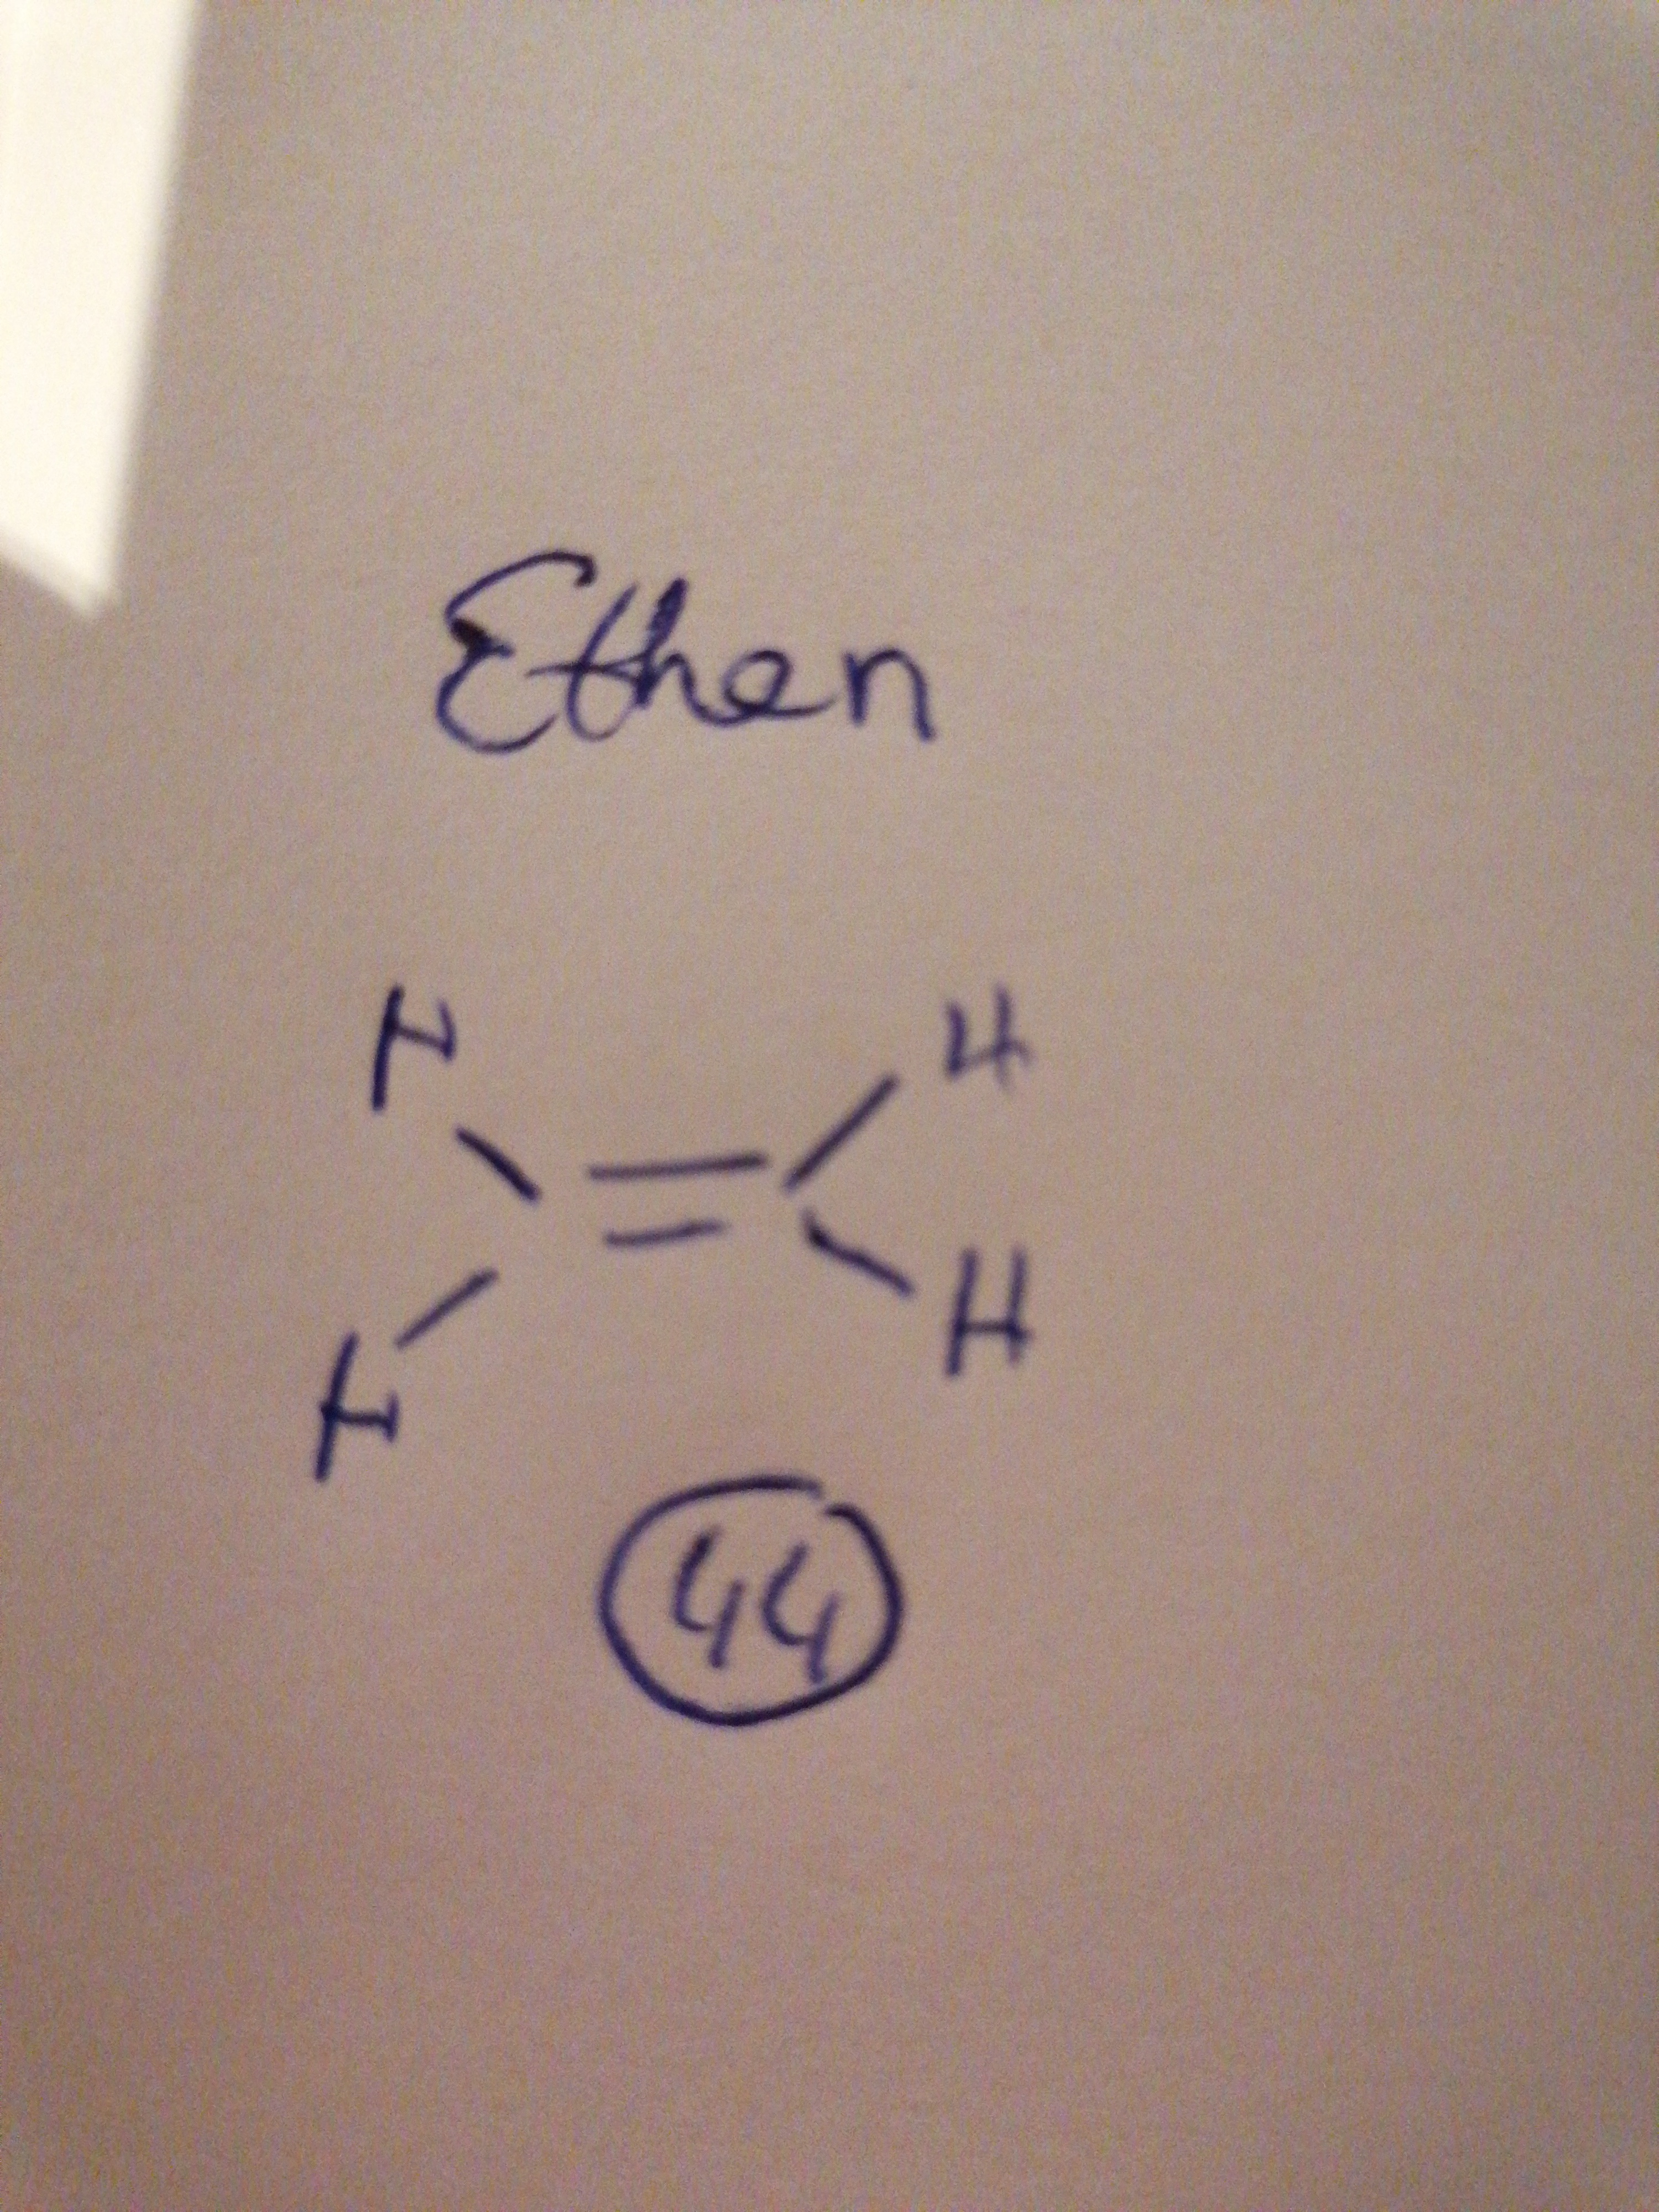 Ethen
H H
H H
44